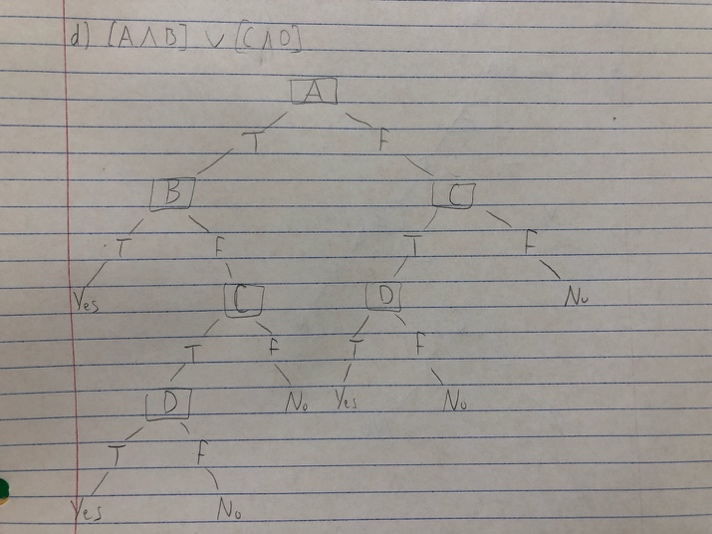 d) [A∧B] ∨ [C∧D]
A
T F
B C
T F T F
Yes C D No
T F T F
D No Yes No
T F
Yes No